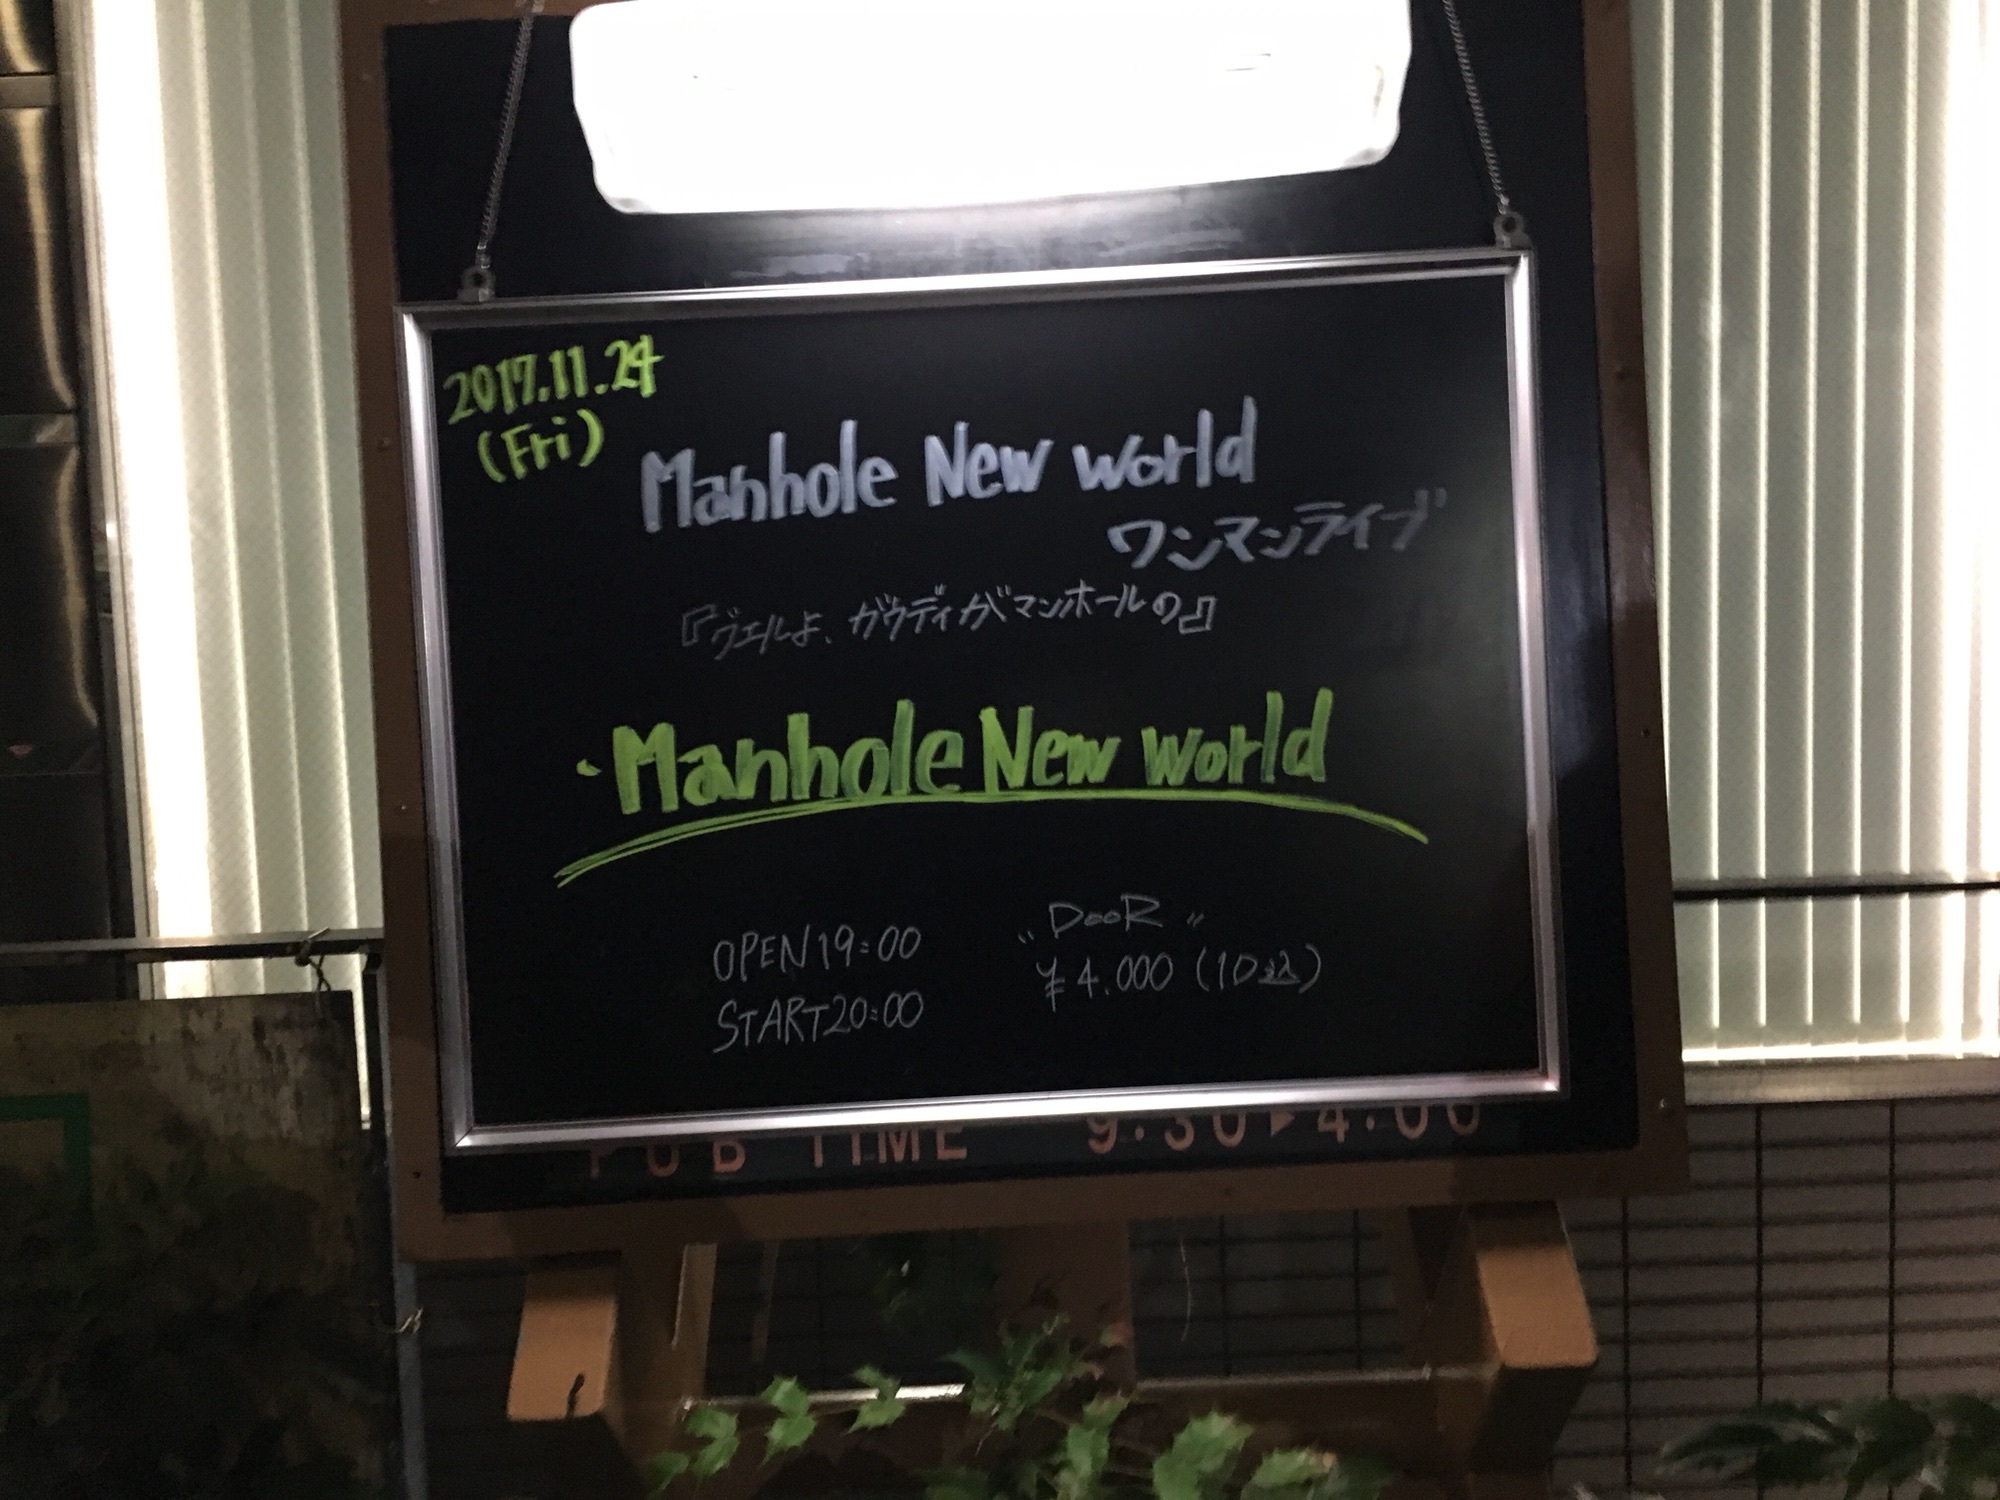 2017.11.24
(Fri)
Manhole New world
ワンマンライブ
『ヴェルよ、ガウディがマンホールの』
・Manhole New world
OPEN 19:00
START 20:00
〃DooR〃
¥4.000 (1D込)
PUB TIME 9:30▶4:00